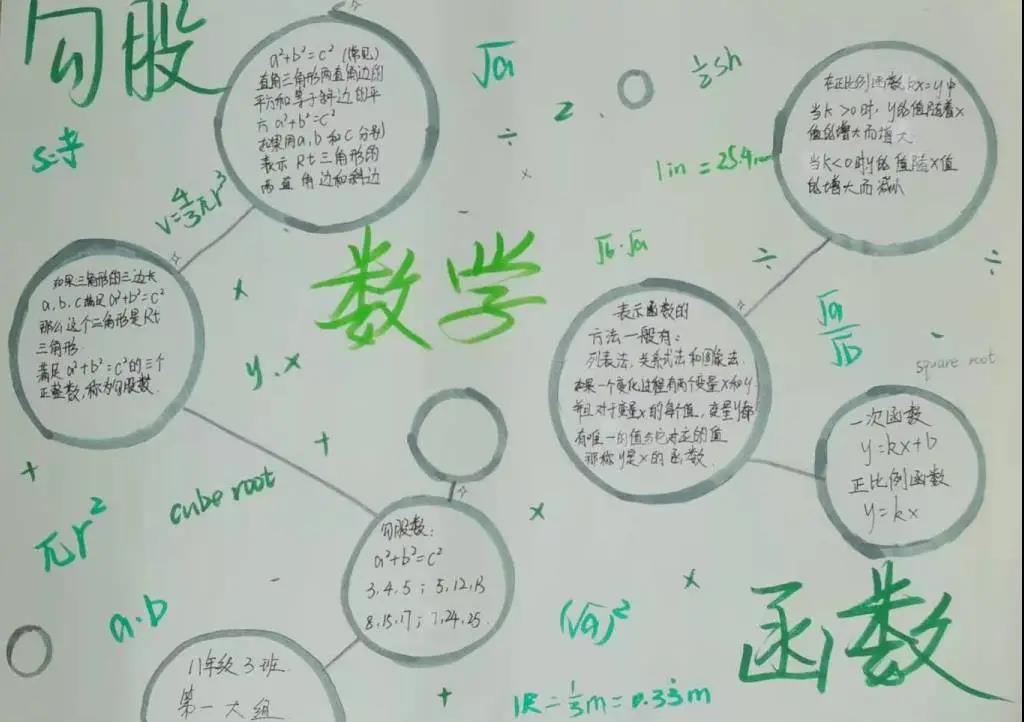 勾股
a²+b²=c² (常见)
直角三角形两直角边的
平方和等于斜边的平
方 a²+b²=c²
如果用a,b和c分别
表示Rt三角形的
两直角边和斜边
√a
÷
2
½sh
在正比例函数kx=y中
当k>0时，y的值随着x
值的增大而增大
当k<0时y的值随x值
的增大而减小
1in=25.4mm
×
V=4/3πr³
数学
√b·√a
÷
÷
如果三角形的三边长
a,b,c满足a²+b²=c²
那么这个三角形是Rt
三角形.
满足a²+b²=c²的三个
正整数,称为勾股数.
×
y.x
表示函数的
方法一般有：
列表法,关系式法和图象法
如果一个变化过程有两个变量x和y
并且对于变量x的每个值，变量y都
有唯一的值与它对应的值
那称y是x的函数.
√a/√b
-
square root
一次函数
y=kx+b
正比例函数
y=kx
+
+
cube root
πr²
勾股数：
a²+b²=c²
3,4,5；5,12,13
8,15,17；7,24,25.
×
×
-
a.b
(√a)²
函数
11年级3班
第一大组
+
1尺=⅓m=0.33m